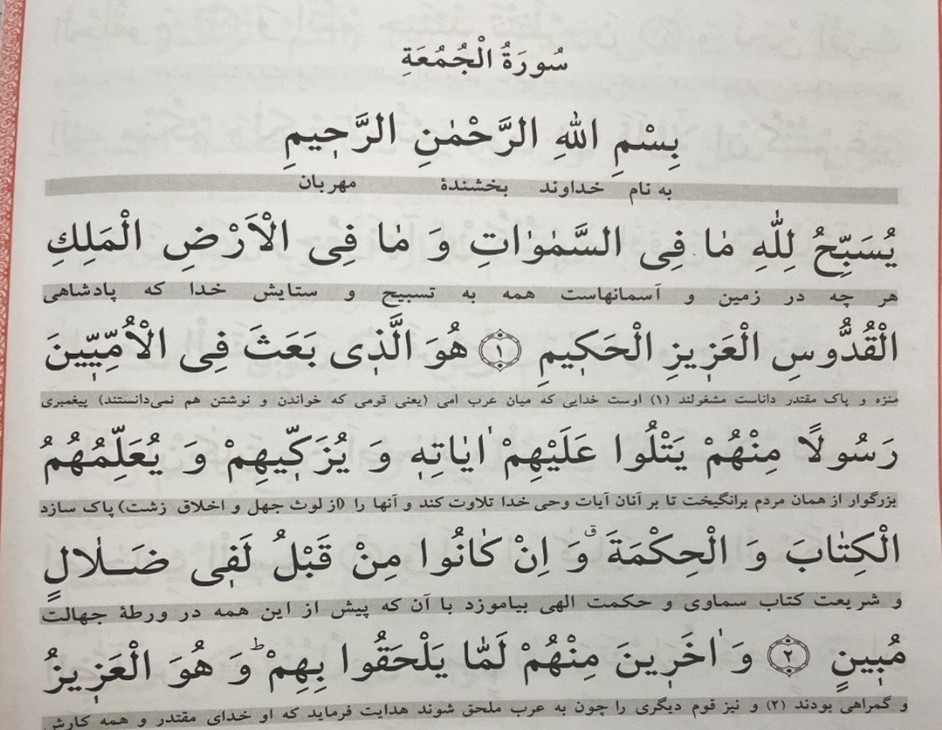 سُورَةُ الْجُمُعَةِ
بِسْمِ اللهِ الرَّحْمٰنِ الرَّحٖيمِ
به نام خداوند بخشندهٔ مهربان
يُسَبِّحُ لِلّٰهِ مٰا فِى السَّمٰوٰاتِ وَ مٰا فِى الْاَرْضِ الْمَلِكِ
هر چه در زمین و آسمانهاست همه به تسبیح و ستایش خدا که پادشاهی
الْقُدُّوسِ الْعَزٖيزِ الْحَكٖيمِ ﴿١﴾ هُوَ الَّذٖى بَعَثَ فِى الْاُمِّيّٖينَ
منزه و پاک مقتدر داناست مشغولند (۱) اوست خدایی که میان عرب امی (یعنی قومی که خواندن و نوشتن هم نمی‌دانستند) پیغمبری
رَسُولًا مِنْهُمْ يَتْلُوا عَلَيْهِمْ اٰيٰاتِهٖ وَ يُزَكّٖيهِمْ وَ يُعَلِّمُهُمُ
بزرگوار از همان مردم برانگیخت تا بر آنان آیات وحی خدا تلاوت کند و آنها را (از لوث جهل و اخلاق زشت) پاک سازد
الْكِتٰابَ وَ الْحِكْمَةَ ۛق وَ اِنْ كٰانُوا مِنْ قَبْلُ لَفٖى ضَـلٰالٍ
و شریعت کتاب سماوی و حکمت الهی بیاموزد با آن که پیش از این همه در ورطهٔ جهالت
مُبٖينٍ ﴿٢﴾ وَ اٰخَرٖينَ مِنْهُمْ لَمّٰا يَلْحَقُوا بِهِمْ ؕ وَ هُوَ الْعَزٖيزُ
و گمراهی بودند (۲) و نیز قوم دیگری را چون به عرب ملحق شوند هدایت فرماید که او خدای مقتدر و همه کارش